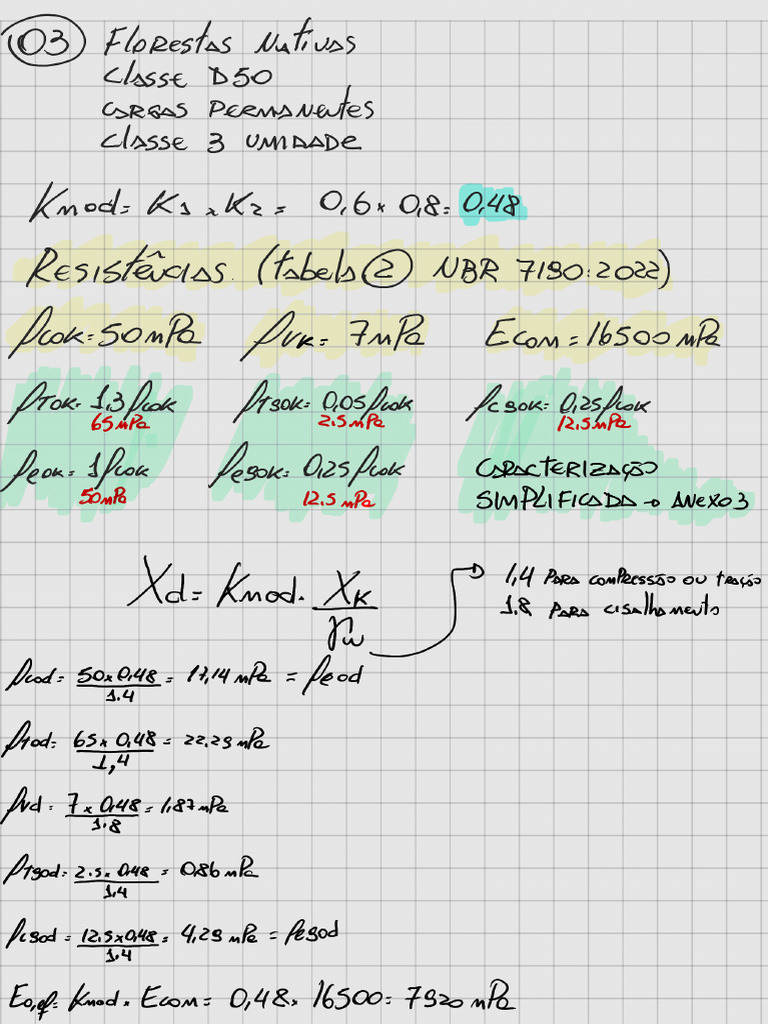 03 Florestas Nativas
Classe D50
Cargas Permanentes
Classe 3 Umidade
Kmod = K1 x K2 = 0,6 x 0,8 = 0,48
Resistências. (tabela 2 NBR 7190:2022)
fc0k = 50 mPa fvk = 7 mPa Ec0m = 16500 mPa
fT0k = 1,3 fc0k fT90k = 0,05 fc0k fc90k = 0,25 fc0k
65 mPa 2.5 mPa 12.5 mPa
fe0k = 1 fc0k fe90k = 0,25 fc0k Caracterização
50 mPa 12.5 mPa Simplificada → Anexo 3
Xd = Kmod . Xk / γw 1,4 para compressão ou tração
1.8 para cisalhamento
fc0d = 50 x 0,48 / 1.4 = 17,14 mPa = fe0d
ft0d = 65 x 0,48 / 1,4 = 22.29 mPa
fvd = 7 x 0,48 / 1.8 = 1,87 mPa
fT90d = 2.5 x 0,48 / 1,4 = 0,86 mPa
fc90d = 12.5 x 0,48 / 1.4 = 4,29 mPa = fe90d
E0,ef = Kmod x Ec0m = 0,48 x 16500 = 7920 mPa